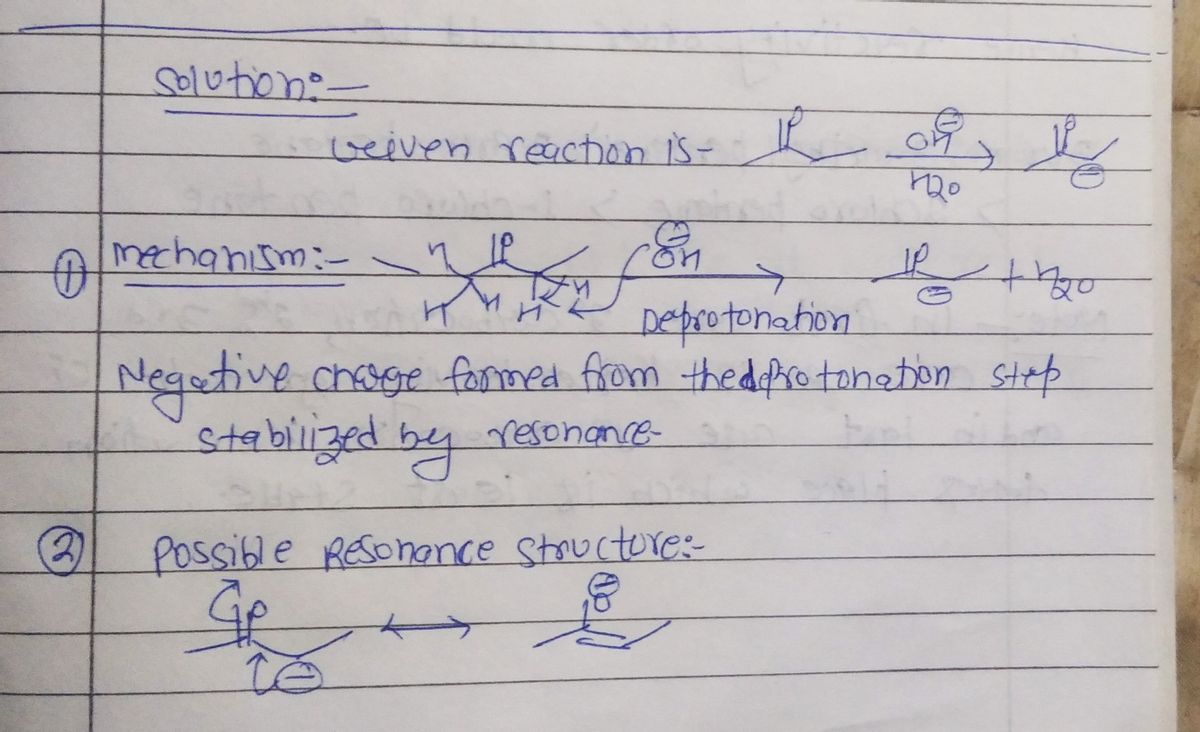 Solution:-
Geiven reaction is- O OH ⊖ O
H2O ⊖
① mechanism:- H O H ⊖OH O + H2O
H H H ⊖
Deprotonation
Negative charge formed from the deprotonation step
stabilized by resonance-
② Possible Resonance structure:-
O ⊖ O
⊖